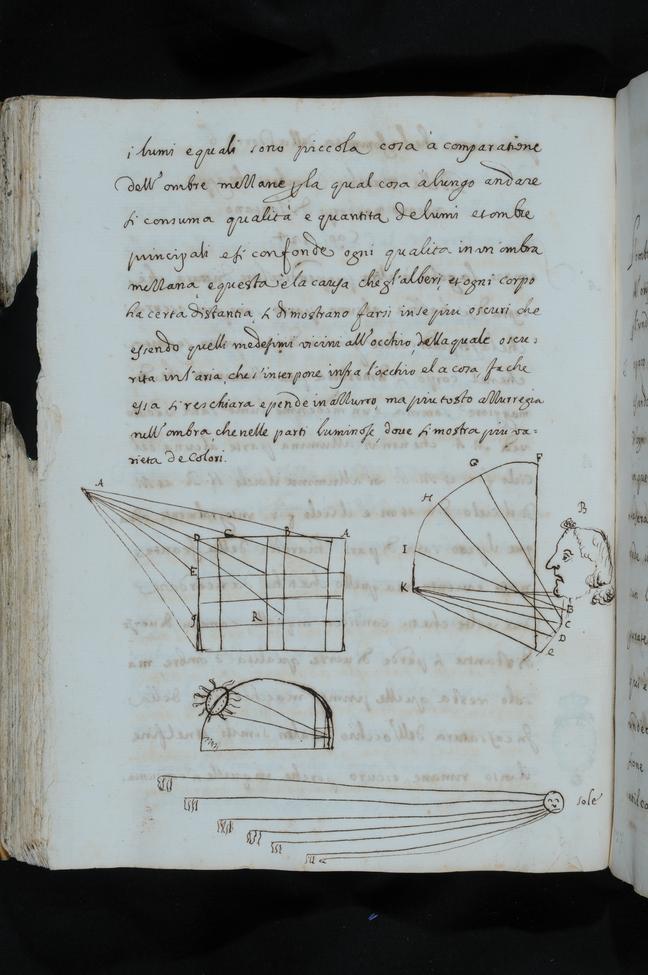 i lumi equali sono piccola cosa à comparatione
dell'ombre mezzane, la qual cosa a lungo andare
si consuma qualità e quantita de lumi et ombre
principali e si confonde ogni qualita in un'ombra
mezzana, e questa e la causa che gl'alberi et ogni corpo
ha certa distantia si dimostrano farsi in se piu oscuri che
essendo quelli medesimi vicini all'occhio, della quale oscu:
rità in l'aria, che s'interpone infra l'occhio e la cosa fa che
essa si reschiara e pende in azzurro, ma piu tosto azzurregia
nell'ombra, che nelle parti luminose, doue si mostra piu va=
rieta de colori.
A
D C B A
E
R
g
F
G
H
I
K
B
B
C
D
e
sole